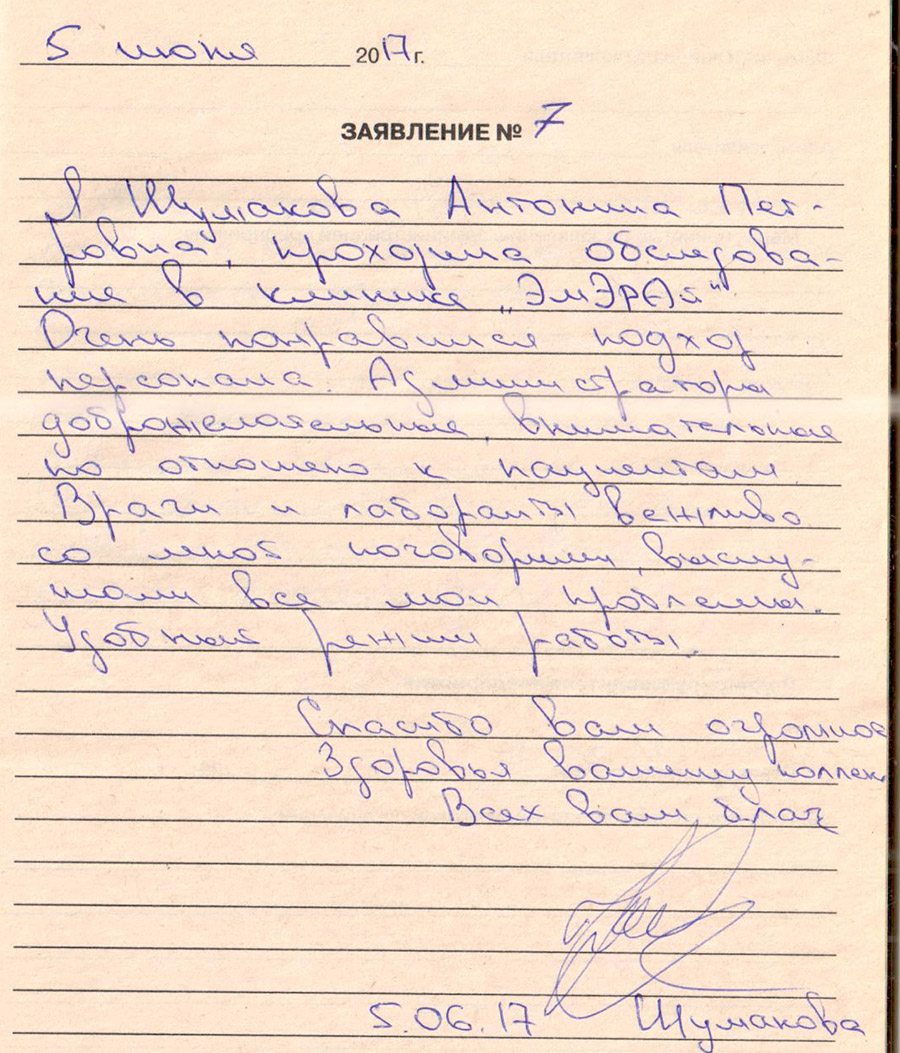 5 июня 2017 г.
ЗАЯВЛЕНИЕ № 7
Я Шумакова Антонина Пет-
ровна, проходила обследова-
ние в клинике „ЭмЭрАй"
Очень понравился подход
персонала. Администратора
доброжелательная, внимательная
по отношено к пациентам.
Врачи и лаборанты вежливо
со мной поговорили, выслу-
шали все мои проблемы.
Удобный режим работы.
Спасибо вам огромное
Здоровья вашему коллек
Всех вам благ
5.06.17 Шумакова